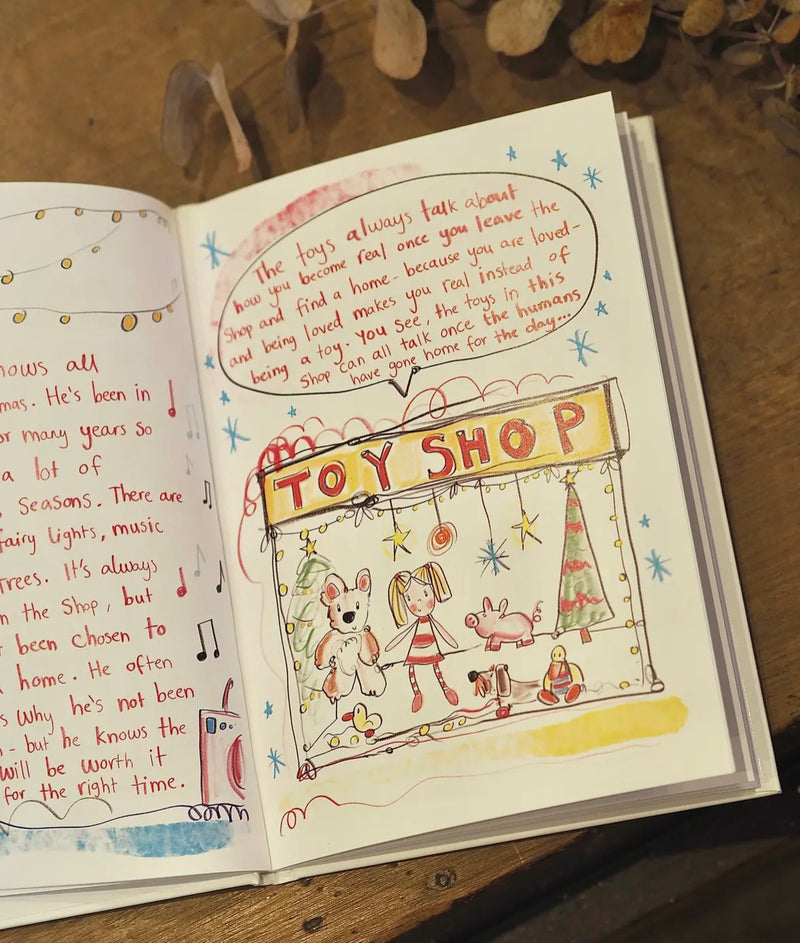 nows all
mas. He's been in
or many years so
a lot of
, Seasons. There are
fairy lights, music
Trees. It's always
n the Shop, but
been chosen to
home. He often
s Why he's not been
- but he knows the
will be worth it
for the right time.
The toys always talk about
how you become real once you leave the
Shop and find a home - because you are loved -
and being loved makes you real instead of
being a toy. You see, the toys in this
Shop can all talk once the humans
have gone home for the day...
TOY SHOP